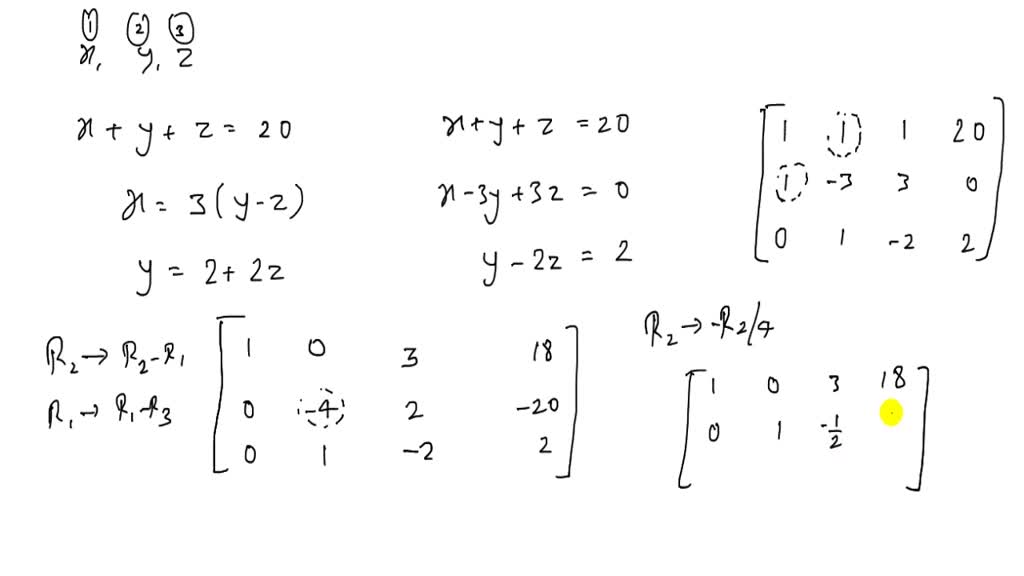 ① ② ③
x, y, z
x + y + z = 20
x = 3(y-z)
y = 2 + 2z
x+y+z = 20
x-3y+3z = 0
y-2z = 2
1 1 1 20
1 -3 3 0
0 1 -2 2
R₂→ R₂-R₁
R₁→ R₁-R₃
1 0 3 18
0 -4 2 -20
0 1 -2 2
R₂→-R₂/4
1 0 3 18
0 1 -1/2